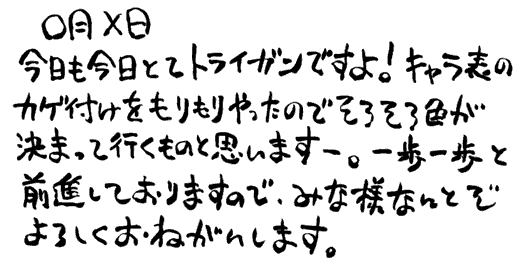 〇月×日
今日も今日とてトライガンですよ!キャラ表の
カゲ付けをもりもりやったのでそろそろ色が
決まって行くものと思いますー。一歩一歩と
前進しておりますので、みな様なんとぞ
よろしくおねがいします。